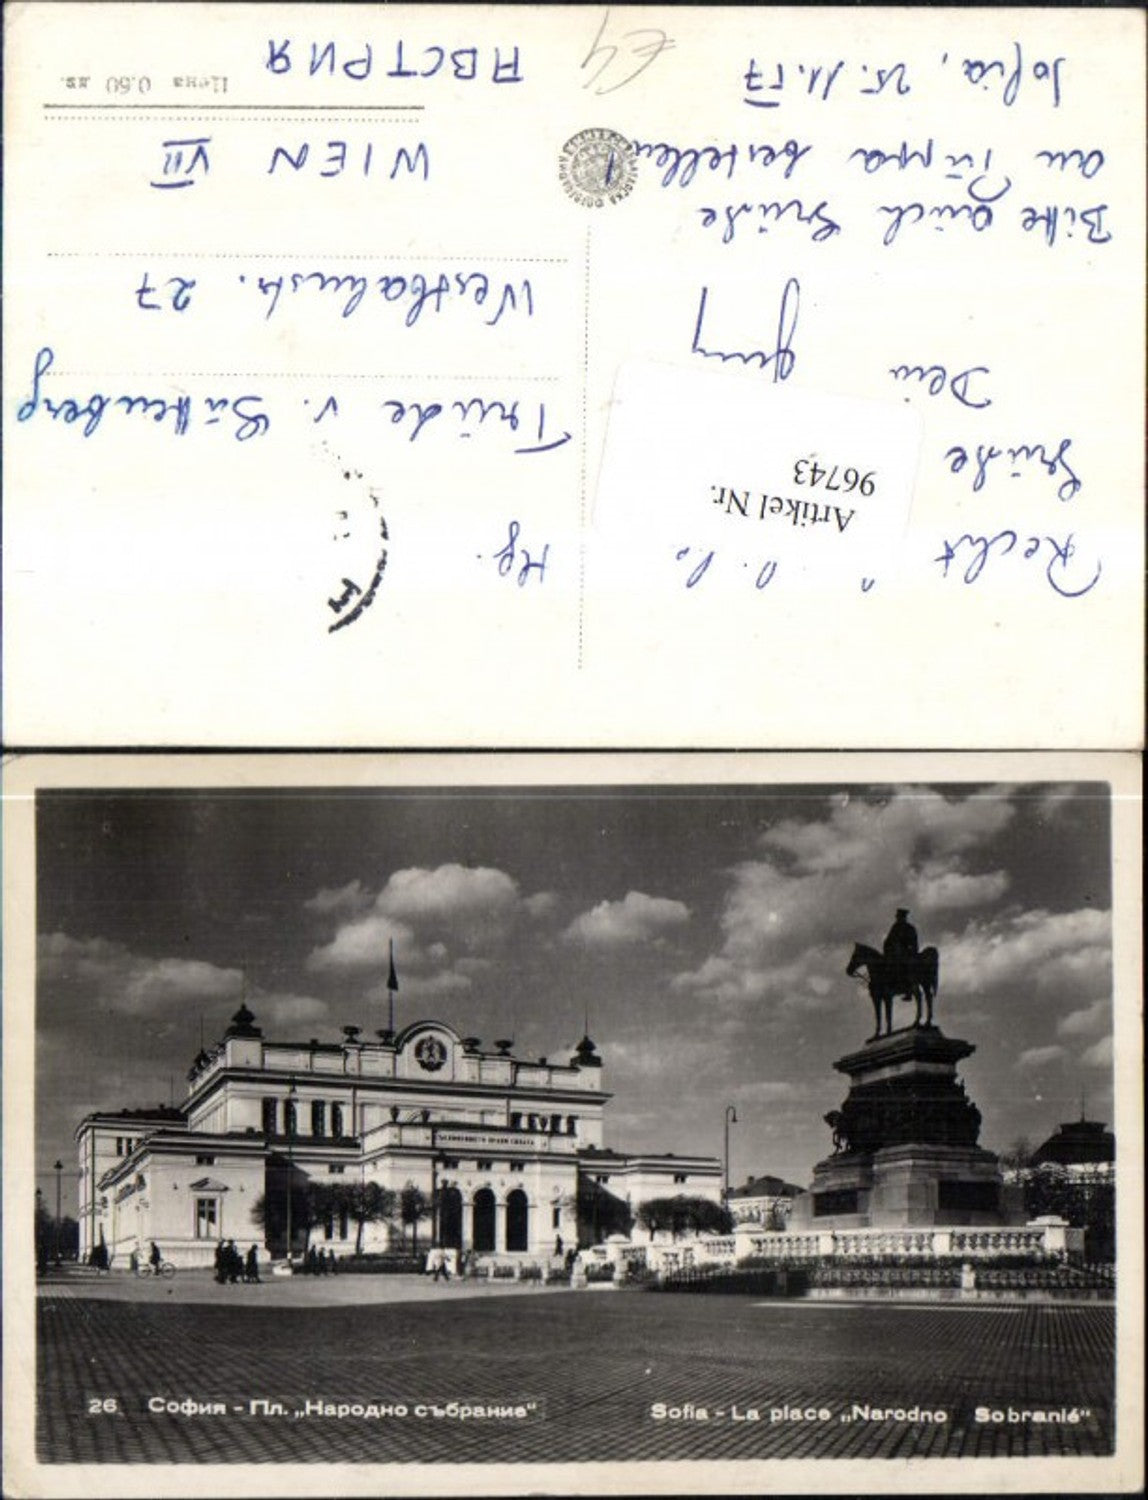 Recht
Grüße
Dein
Bitte auch Grüße
an Püppa bestellen!
Sofia, 25.11.57
Artikel Nr.
96743
Hf.
Trude v.
Westbahnstr. 27
WIEN VII
АВСТРИЯ
Цена 0.60 лв.
E4
СЪЕДИНЕНИЕТО ПРАВИ СИЛАТА
26 София - Пл. „Народно събрание“
Sofia - La place „Narodno Sobranié“